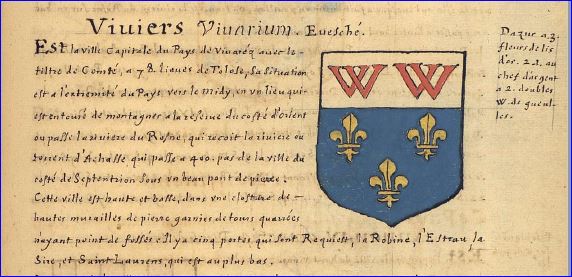 Viviers Vivarium. Evesché.
Est la ville Capitale du Pays de Vivaréz avec le
tiltre de Comté, a 78. lieues de Tolose, sa situation
est a l'extremité du Pays, vers le midy, en un lieu qui
est entouré de montagnes a la reserve du costé d'orient
ou passe la riviere du Rosne, qui reçoit la riviere ou
torrent d'Achasse qui passe a 400. pas de la ville du
costé de Septentrion sous un beau pont de pierre.
Cette ville est haute et basse, dans une closture de
hautes murailles de pierre garnies de tours quarrées
n'ayant point de fossés. Il y a cinq portes, qui sont Requiest, la Robine, l'Estrau la
Sire, et Saint Laurens, qui est au plus bas.
W W
D'azur a 3.
fleurs de lis
d'or. 2.1. au
chef d'argent
a 2. doubles
W. de gueul-
les.